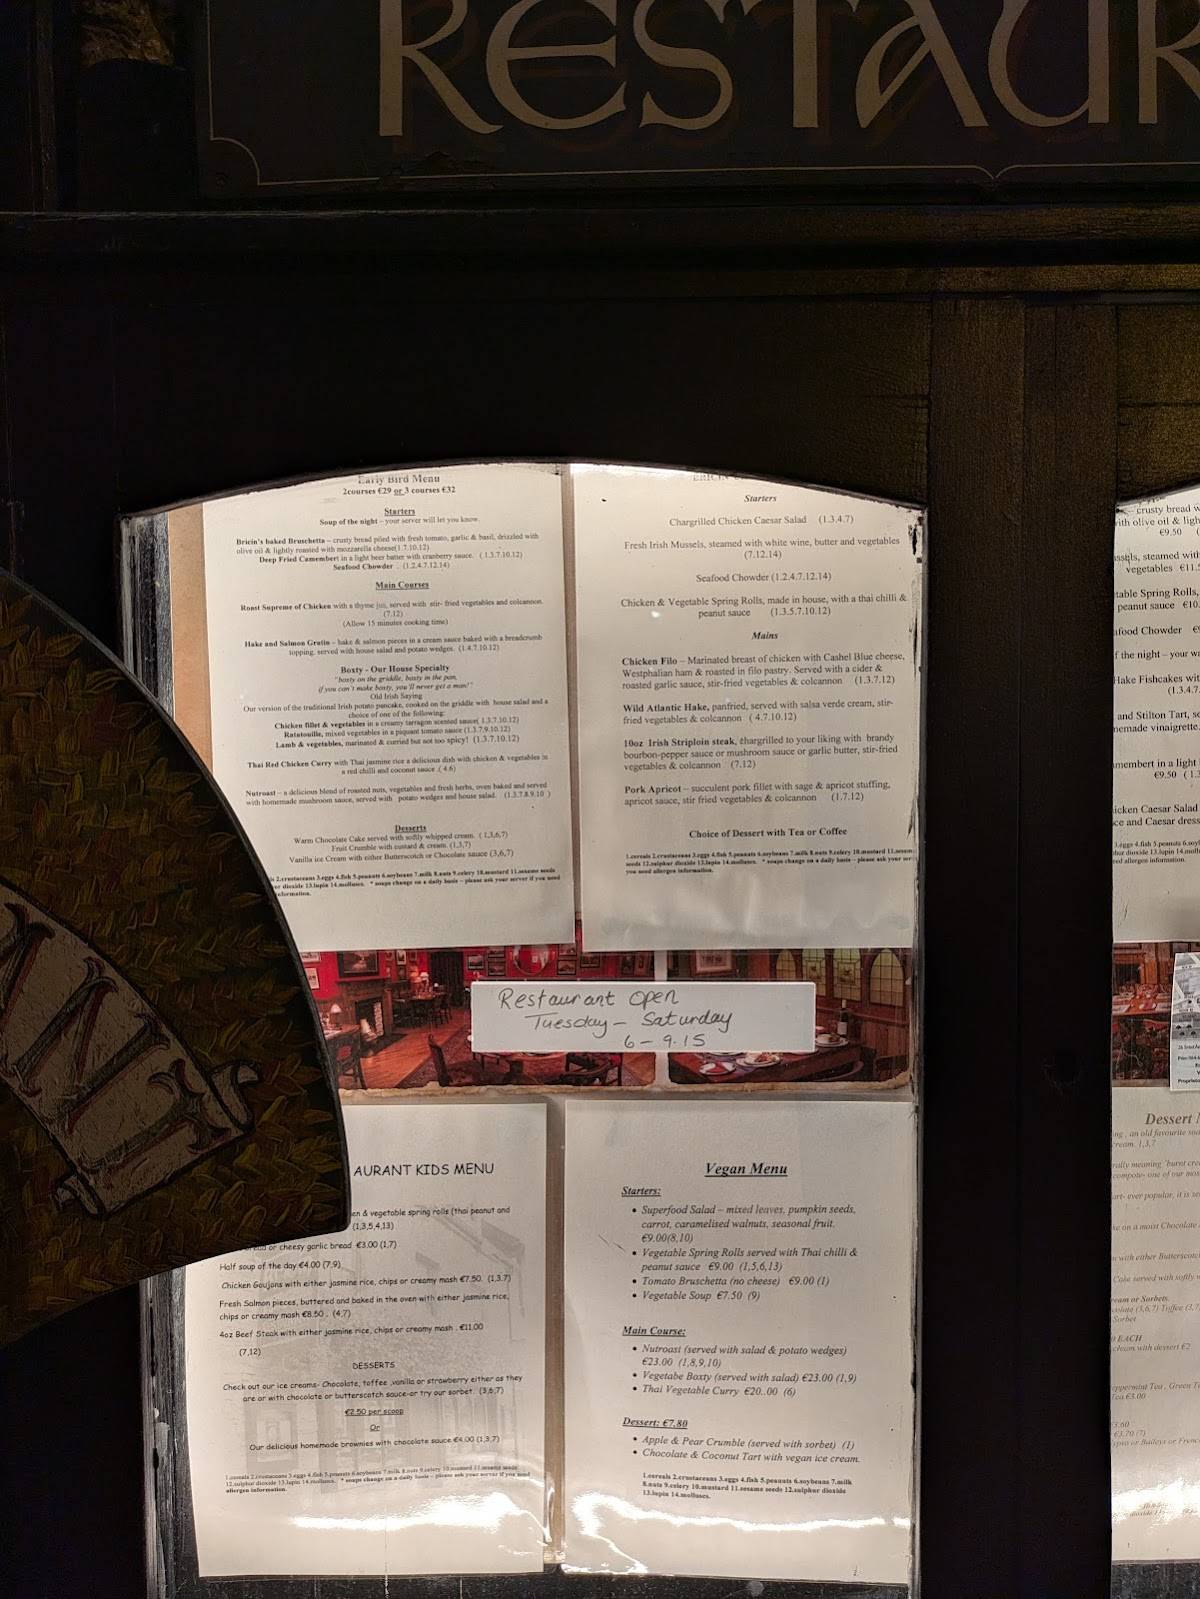 RESTAUR
Early Bird Menu
2courses €29 or 3 courses €32
Starters
Soup of the night – your server will let you know.
Bricin's baked Bruschetta – crusty bread piled with fresh tomato, garlic & basil, drizzled with
olive oil & lightly roasted with mozzarella cheese(1.7.10.12)
Deep Fried Camembert in a light beer batter with cranberry sauce. ( 1.3.7.10.12)
Seafood Chowder . (1.2.4.7.12.14)
Main Courses
Roast Supreme of Chicken with a thyme jus, served with stir- fried vegetables and colcannon.
(7.12)
(Allow 15 minutes cooking time)
Hake and Salmon Gratin – hake & salmon pieces in a cream sauce baked with a breadcrumb
topping, served with house salad and potato wedges. (1.4.7.10.12)
Boxty - Our House Specialty
"boxty on the griddle, boxty in the pan,
if you can't make boxty, you'll never get a man!"
Old Irish Saying
Our version of the traditional Irish potato pancake, cooked on the griddle with house salad and a
choice of one of the following:
Chicken fillet & vegetables in a creamy tarragon scented sauce( 1.3.7.10.12)
Ratatouille, mixed vegetables in a piquant tomato sauce (1.3.7.9.10.12)
Lamb & vegetables, marinated & curried but not too spicy! (1.3.7.10.12)
Thai Red Chicken Curry with Thai jasmine rice a delicious dish with chicken & vegetables in
a red chilli and coconut sauce .( 4.6)
Nutroast – a delicious blend of roasted nuts, vegetables and fresh herbs, oven baked and served
with homemade mushroom sauce, served with potato wedges and house salad. (1.3.7.8.9.10 )
Desserts
Warm Chocolate Cake served with softly whipped cream. ( 1,3,6,7)
Fruit Crumble with custard & cream. (1,3,7)
Vanilla ice Cream with either Butterscotch or Chocolate sauce (3,6,7)
2.crustaceans 3.eggs 4.fish 5.peanuts 6.soybeans 7.milk 8.nuts 9.celery 10.mustard 11.sesame seeds
dioxide 13.lupin 14.molluscs. * soups change on a daily basis – please ask your server if you need
information.
Starters
Chargrilled Chicken Caesar Salad (1.3.4.7)
Fresh Irish Mussels, steamed with white wine, butter and vegetables
(7.12.14)
Seafood Chowder (1.2.4.7.12.14)
Chicken & Vegetable Spring Rolls, made in house, with a thai chilli &
peanut sauce (1.3.5.7.10.12)
Mains
Chicken Filo – Marinated breast of chicken with Cashel Blue cheese,
Westphalian ham & roasted in filo pastry. Served with a cider &
roasted garlic sauce, stir-fried vegetables & colcannon (1.3.7.12)
Wild Atlantic Hake, panfried, served with salsa verde cream, stir-
fried vegetables & colcannon ( 4.7.10.12)
10oz Irish Striploin steak, chargrilled to your liking with brandy
bourbon-pepper sauce or mushroom sauce or garlic butter, stir-fried
vegetables & colcannon (7.12)
Pork Apricot – succulent pork fillet with sage & apricot stuffing,
apricot sauce, stir fried vegetables & colcannon (1.7.12)
Choice of Dessert with Tea or Coffee
1.cereals 2.crustaceans 3.eggs 4.fish 5.peanuts 6.soybeans 7.milk 8.nuts 9.celery 10.mustard 11.sesame
seeds 12.sulphur dioxide 13.lupin 14.molluscs. * soups change on a daily basis – please ask your server
you need allergen information.
Restaurant Open
Tuesday – Saturday
6 – 9.15
AURANT KIDS MENU
& vegetable spring rolls (thai peanut and
(1,3,5,4,13)
or cheesy garlic bread €3.00 (1,7)
Half soup of the day €4.00 (7,9)
Chicken Goujons with either jasmine rice, chips or creamy mash €7.50. (1,3,7)
Fresh Salmon pieces, buttered and baked in the oven with either jasmine rice,
chips or creamy mash €8.50 . (4,7)
4oz Beef Steak with either jasmine rice, chips or creamy mash . €11.00
(7,12)
DESSERTS
Check out our ice creams- Chocolate, toffee ,vanilla or strawberry either as they
are or with chocolate or butterscotch sauce-or try our sorbet. (3,6,7)
€2.50 per scoop
Or
Our delicious homemade brownies with chocolate sauce €4.00 (1,3,7)
1.cereals 2.crustaceans 3.eggs 4.fish 5.peanuts 6.soybeans 7.milk 8.nuts 9.celery 10.mustard 11.sesame seeds
12.sulphur dioxide 13.lupin 14.molluscs. * soups change on a daily basis – please ask your server if you need
allergen information.
Vegan Menu
Starters:
• Superfood Salad – mixed leaves, pumpkin seeds,
carrot, caramelised walnuts, seasonal fruit.
€9.00(8,10)
• Vegetable Spring Rolls served with Thai chilli &
peanut sauce €9.00 (1,5,6,13)
• Tomato Bruschetta (no cheese) €9.00 (1)
• Vegetable Soup €7.50 (9)
Main Course:
• Nutroast (served with salad & potato wedges)
€23.00 (1,8,9,10)
• Vegetabe Boxty (served with salad) €23.00 (1,9)
• Thai Vegetable Curry €20..00 (6)
Dessert: €7.80
• Apple & Pear Crumble (served with sorbet) (1)
• Chocolate & Coconut Tart with vegan ice cream.
1.cereals 2.crustaceans 3.eggs 4.fish 5.peanuts 6.soybeans 7.milk
8.nuts 9.celery 10.mustard 11.sesame seeds 12.sulphur dioxide
13.lupin 14.molluscs.
crusty bread
with olive oil & ligh
€9.50
steamed with
vegetables €11.5
table Spring Rolls,
peanut sauce €10.
afood Chowder
the night – your
Hake Fishcakes wit
(1.3.4.7.
and Stilton Tart,
memade vinaigrette.
in a light
€9.50
Chicken Caesar Salad
and Caesar dress
Dessert